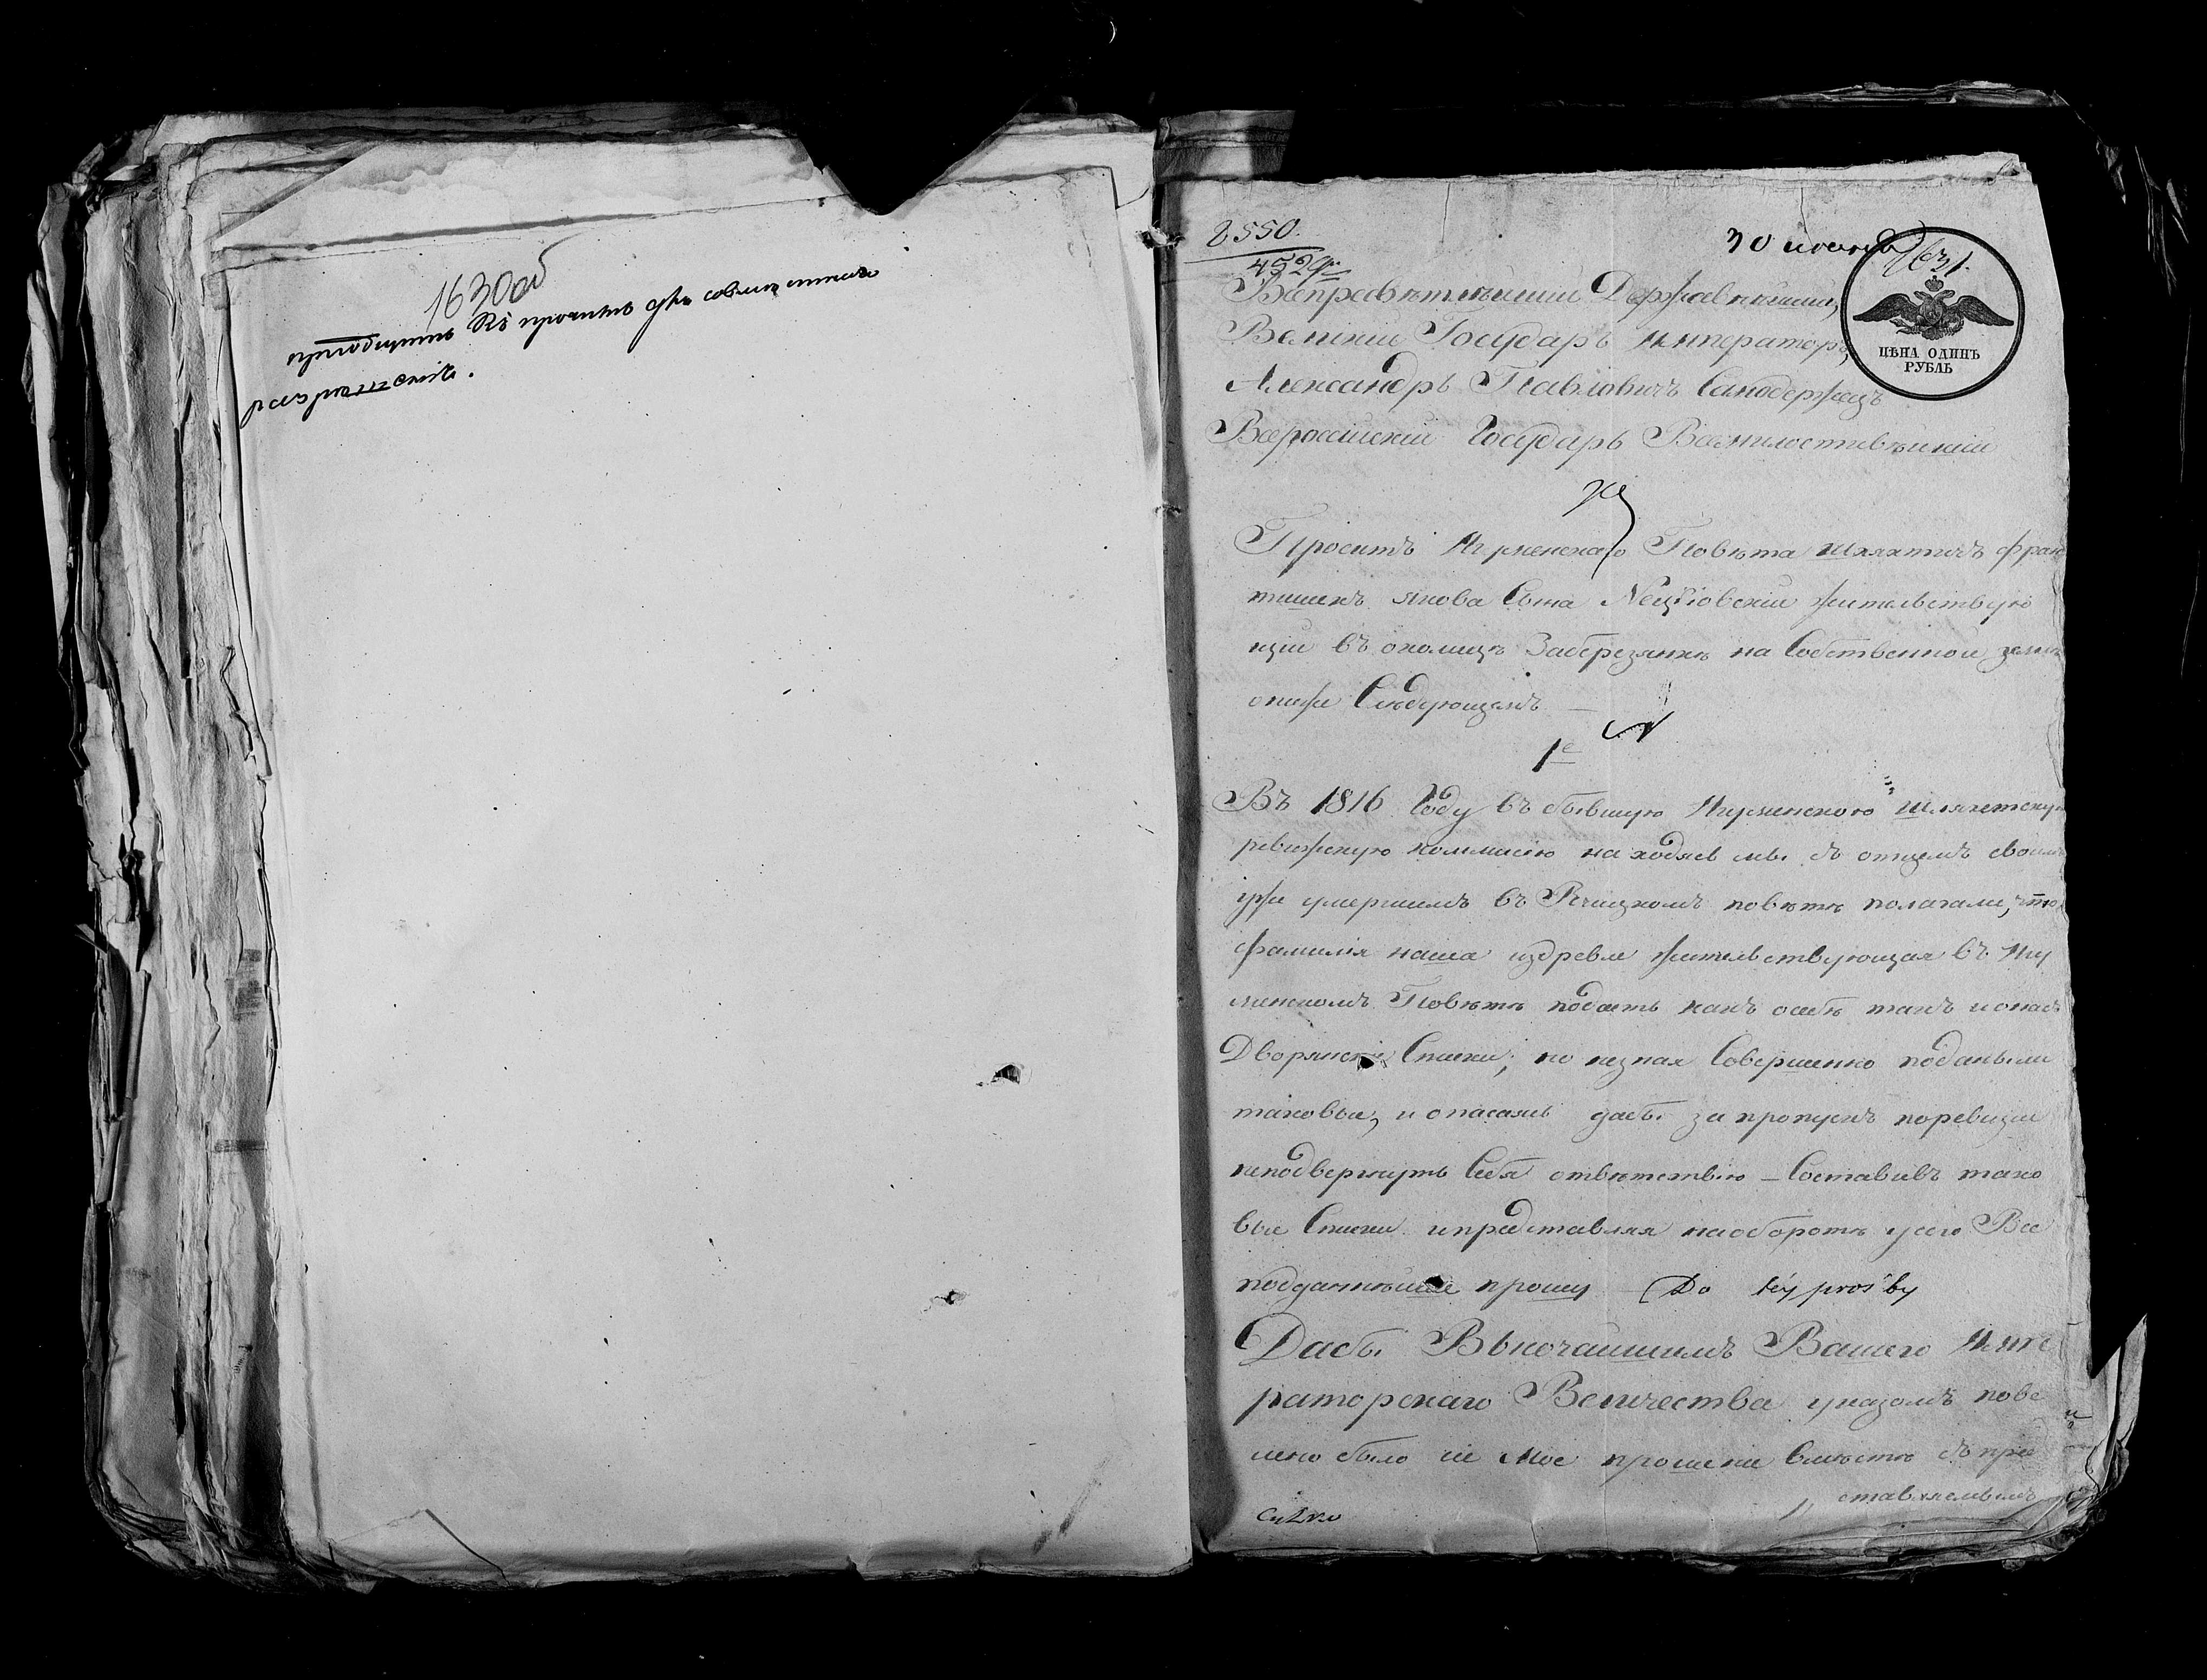 1630об
приобщить къ прочимъ для совместнаго
разрешенія.
2550.
452
30 июня
1631.
ЦѢНА ОДИНЪ
РУБЛЬ
Всепресветлѣишіи Державнѣишіи,
Великіи Государь Императоръ,
Александръ Павловичъ Самодержецъ
Всероссіискіи Государь Всемилостивѣишіи
Проситъ Игуменскаго Повѣта шляхтичъ Фран
тишекъ Якова Сынъ Нецѣіовскіи жительствую
щіи въ околицѣ Заберезянкѣ на Собственнои землѣ
о ниже Слѣдующемъ
1е
Въ 1816 Году въ бывшую Игуменскою шляхетскую
ревижскую коммисію находясь мы съ отцемъ своимъ
уже умершимъ въ Рѣчицкомъ повѣтѣ полагали, что
фамилія наша издревле жительствующая въ Игу
менскомъ Повѣтѣ подастъ какъ о себѣ такъ и о насъ
Дворянскіе Списки; но незная Совершенно поданы ли
таковые, и опасаясь дабы за пропускъ по ревизіи
неподвергнуть Себя отвѣтствію – Составивъ тако
вые Списки и представляя на оборотѣ у сего Все
подданнѣише прошу (Do tey prośby
Дабы Высочаишимъ Вашего Импе
раторскаго Величества указомъ пове
лено было сіе Мое прошеніе вместѣ съ пре
ставляемымъ